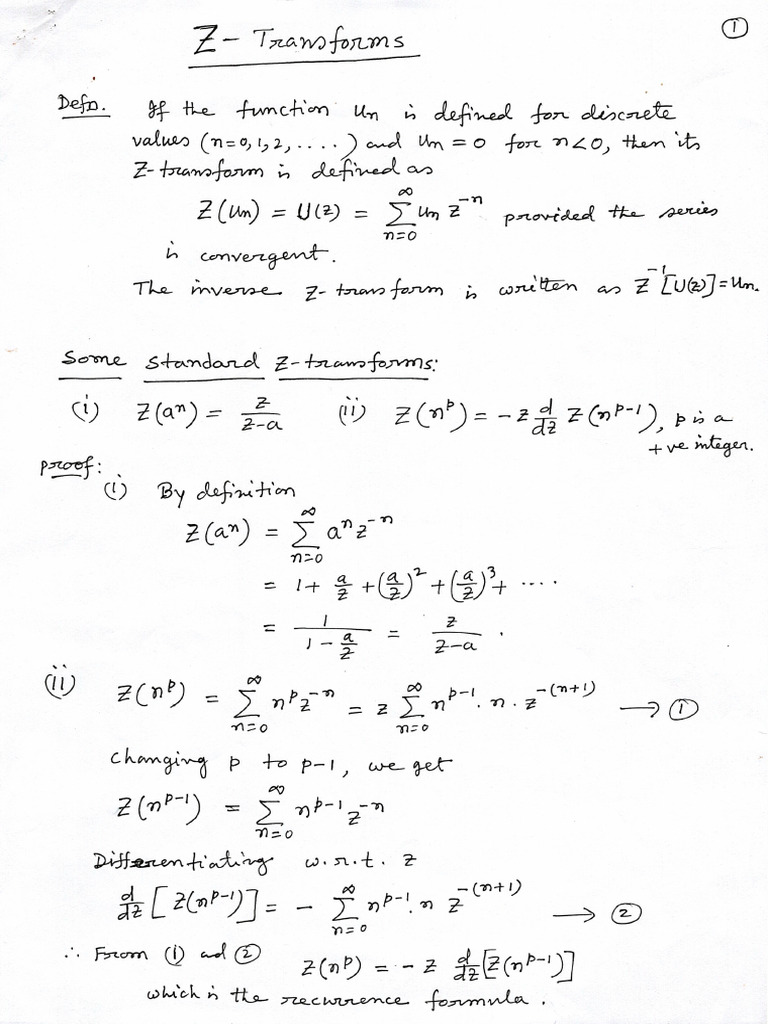 Z - Transforms
①
Defn. If the function Un is defined for discrete
values (n=0, 1, 2, ....) and Un = 0 for n<0, then its
Z-transform is defined as
Z(Un) = U(z) = ∑_{n=0}^{∞} Un z^{-n} provided the series
is convergent.
The inverse Z-transform is written as Z^{-1}[U(z)] = Un.
Some standard Z-transforms:
(i) Z(a^n) = z/(z-a) (ii) Z(n^p) = -z d/dz Z(n^{p-1}), p is a
+ve integer.
proof:
(i) By definition
Z(a^n) = ∑_{n=0}^{∞} a^n z^{-n}
= 1 + a/z + (a/z)^2 + (a/z)^3 + ....
= 1/(1 - a/z) = z/(z-a) .
(ii) Z(n^p) = ∑_{n=0}^{∞} n^p z^{-n} = z ∑_{n=0}^{∞} n^{p-1} . n . z^{-(n+1)} → ①
Changing p to p-1, we get
Z(n^{p-1}) = ∑_{n=0}^{∞} n^{p-1} z^{-n}
Differentiating w.r.t. z
d/dz [Z(n^{p-1})] = - ∑_{n=0}^{∞} n^{p-1} . n z^{-(n+1)} → ②
∴ From ① ad ② Z(n^p) = -z d/dz [Z(n^{p-1})]
which is the recurrence formula.